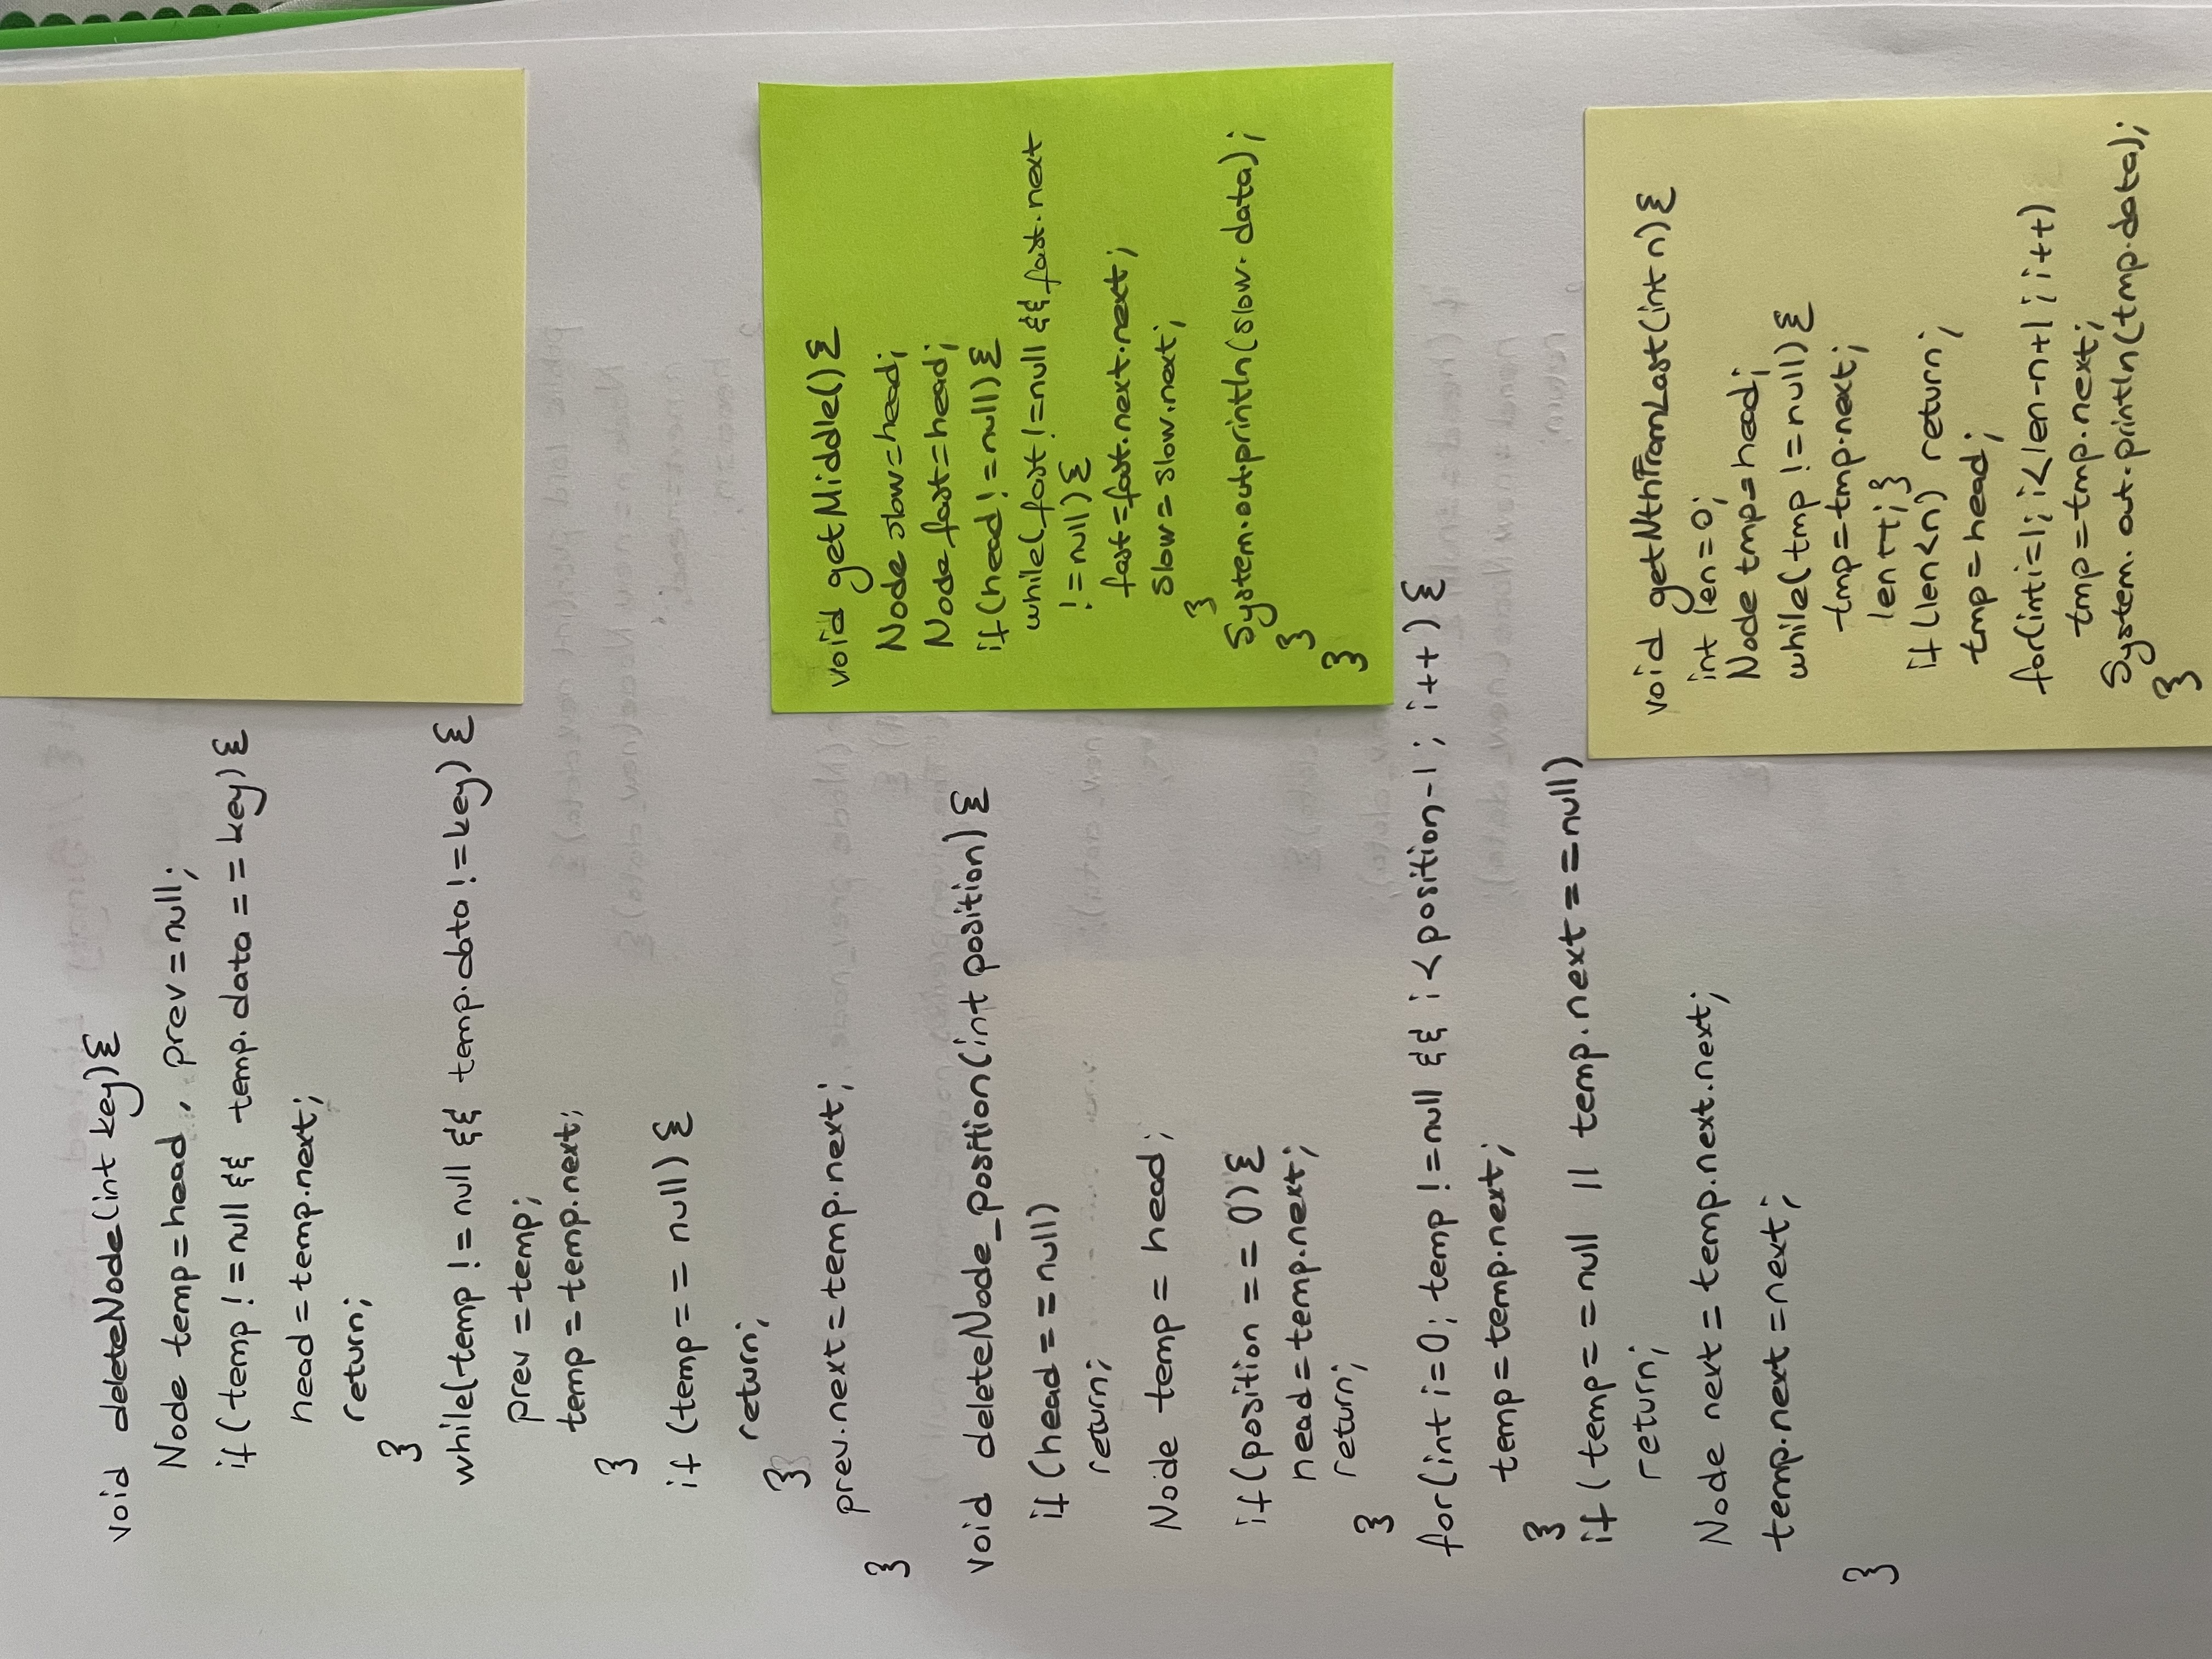 void deleteNode(int key){
Node temp=head, prev=null;
if(temp!=null && temp.data==key){
head=temp.next;
return;
}
while(temp!=null && temp.data!=key){
prev=temp;
temp=temp.next;
}
if(temp==null){
return;
}
prev.next=temp.next;
}
void deleteNode_position(int position){
if(head==null)
return;
Node temp=head;
if(position==0){
head=temp.next;
return;
}
for(int i=0; temp!=null && i<position-1; i++){
temp=temp.next;
}
if(temp==null || temp.next==null)
return;
Node next=temp.next.next;
temp.next=next;
}
void getMiddle(){
Node slow=head;
Node fast=head;
if(head!=null){
while(fast!=null && fast.next
!=null){
fast=fast.next.next;
slow=slow.next;
}
System.out.println(slow.data);
}
}
void getNthFromLast(int n){
int len=0;
Node tmp=head;
while(tmp!=null){
tmp=tmp.next;
len++;}
if(len<n) return;
tmp=head;
for(int i=1; i<len-n+1; i++)
tmp=tmp.next;
System.out.println(tmp.data);
}